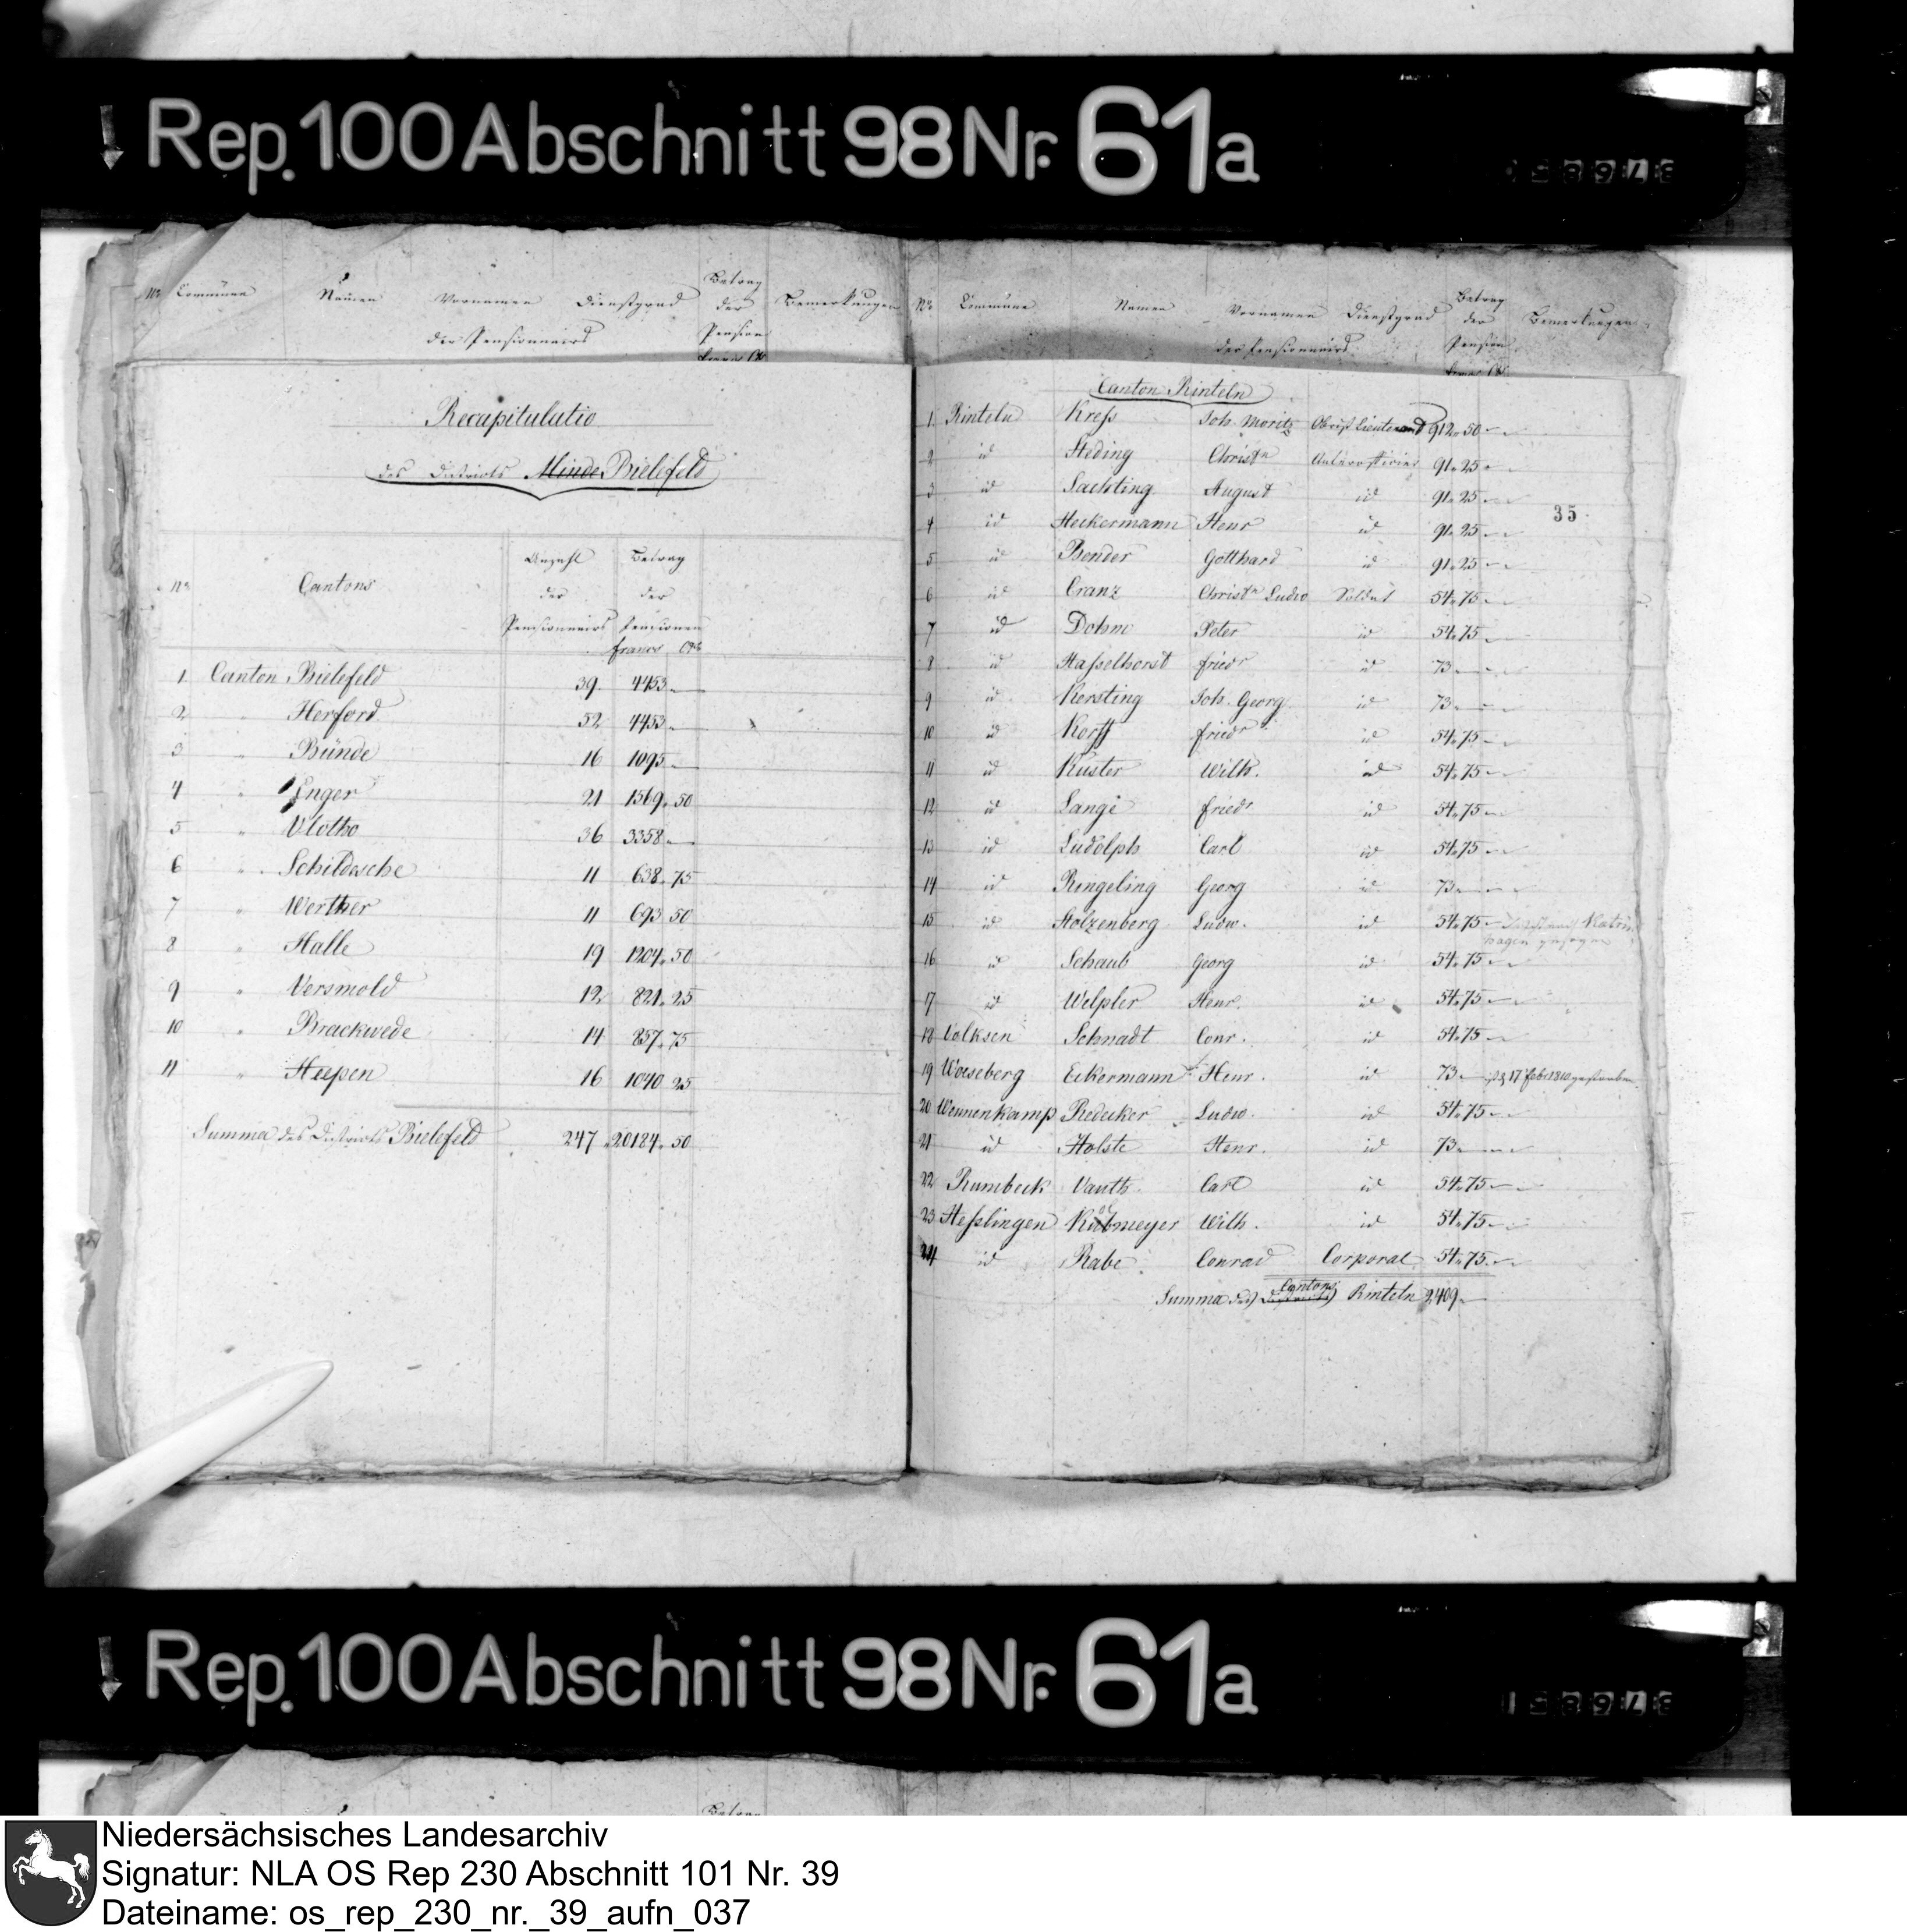 Rep. 100 Abschnitt 98 Nr. 61a
Nr. Commünen Namen Vornamen Dienstgrad Betrag der Pension Bemerkungen
der Pensionnairs
Francs Cts
Recapitulatio
des Districts Minde Bielefeld
Nr. Cantons Anzahl der Pensionnairs Betrag der Pensionen
francs Cts
1 Canton Bielefeld 39. 4453 " —
2 " Herford 52 4453 " —
3 " Bünde 16 1095 " —
4 " Enger 21 1569 " 50
5 " Vlotho 36 3358 " —
6 " Schildesche 11 638 " 75
7 " Werther 11 693 50
8 " Halle 19 1204 " 50
9 " Versmold 12 821 " 25
10 " Brackwede 14 857 " 75
11 " Heepen 16 1040 25
Summa des Districts Bielefeld 247 20184 " 50
Nr. Commüne Namen Vornamen Dienstgrad Betrag der Pension Bemerkungen
der Pensionnairs
Francs Cts
Canton Rinteln
1 Rinteln Kreß Joh. Moritz Obrist Lieutenand 912 " 50
2 id Steding Christn Unterofficier 91 " 25
3 id Sachting August id 91 " 25
35
4 id Heckermann Henr id 91 " 25
5 id Bender Gotthard id 91 " 25
6 id Cranz Christn Ludw Soldat 54 " 75
7 id Dohm Peter id 54 " 75
8 id Haßelhorst friedr id 73 "
9 id Kersting Joh. Georg id 73 "
10 id Korff friedr id 54 " 75
11 id Küster Wilh. id 54 " 75
12 id Lange friedr id 54 " 75
13 id Ludolph Carl id 54 " 75
14 id Ringeling Georg id 73 "
15 id Stolzenberg Ludw. id 54 " 75 nach Katrin
hagen gezogen
16 id Schaub Georg id 54 " 75
17 id Welpler Henr. id 54 " 75
18 Volksen Schnadt Conr. id 54 " 75
19 Woeseberg Eckermann Henr. id 73 — ist d 17 febr 1810 gestorben
20 Wennenkamp Redecker Ludw. id 54 " 75
21 id Holste Henr. id 73 "
22 Rumbeck Vauth Carl id 54 " 75
23 Heßlingen meyer Wilh. id 54 " 75
24 id Rabe Conrad Corporal 54 " 75
Summa des Districts Cantons Rinteln 2409 " —
Rep. 100 Abschnitt 98 Nr. 61a
Niedersächsisches Landesarchiv
Signatur: NLA OS Rep 230 Abschnitt 101 Nr. 39
Dateiname: os_rep_230_nr._39_aufn_037